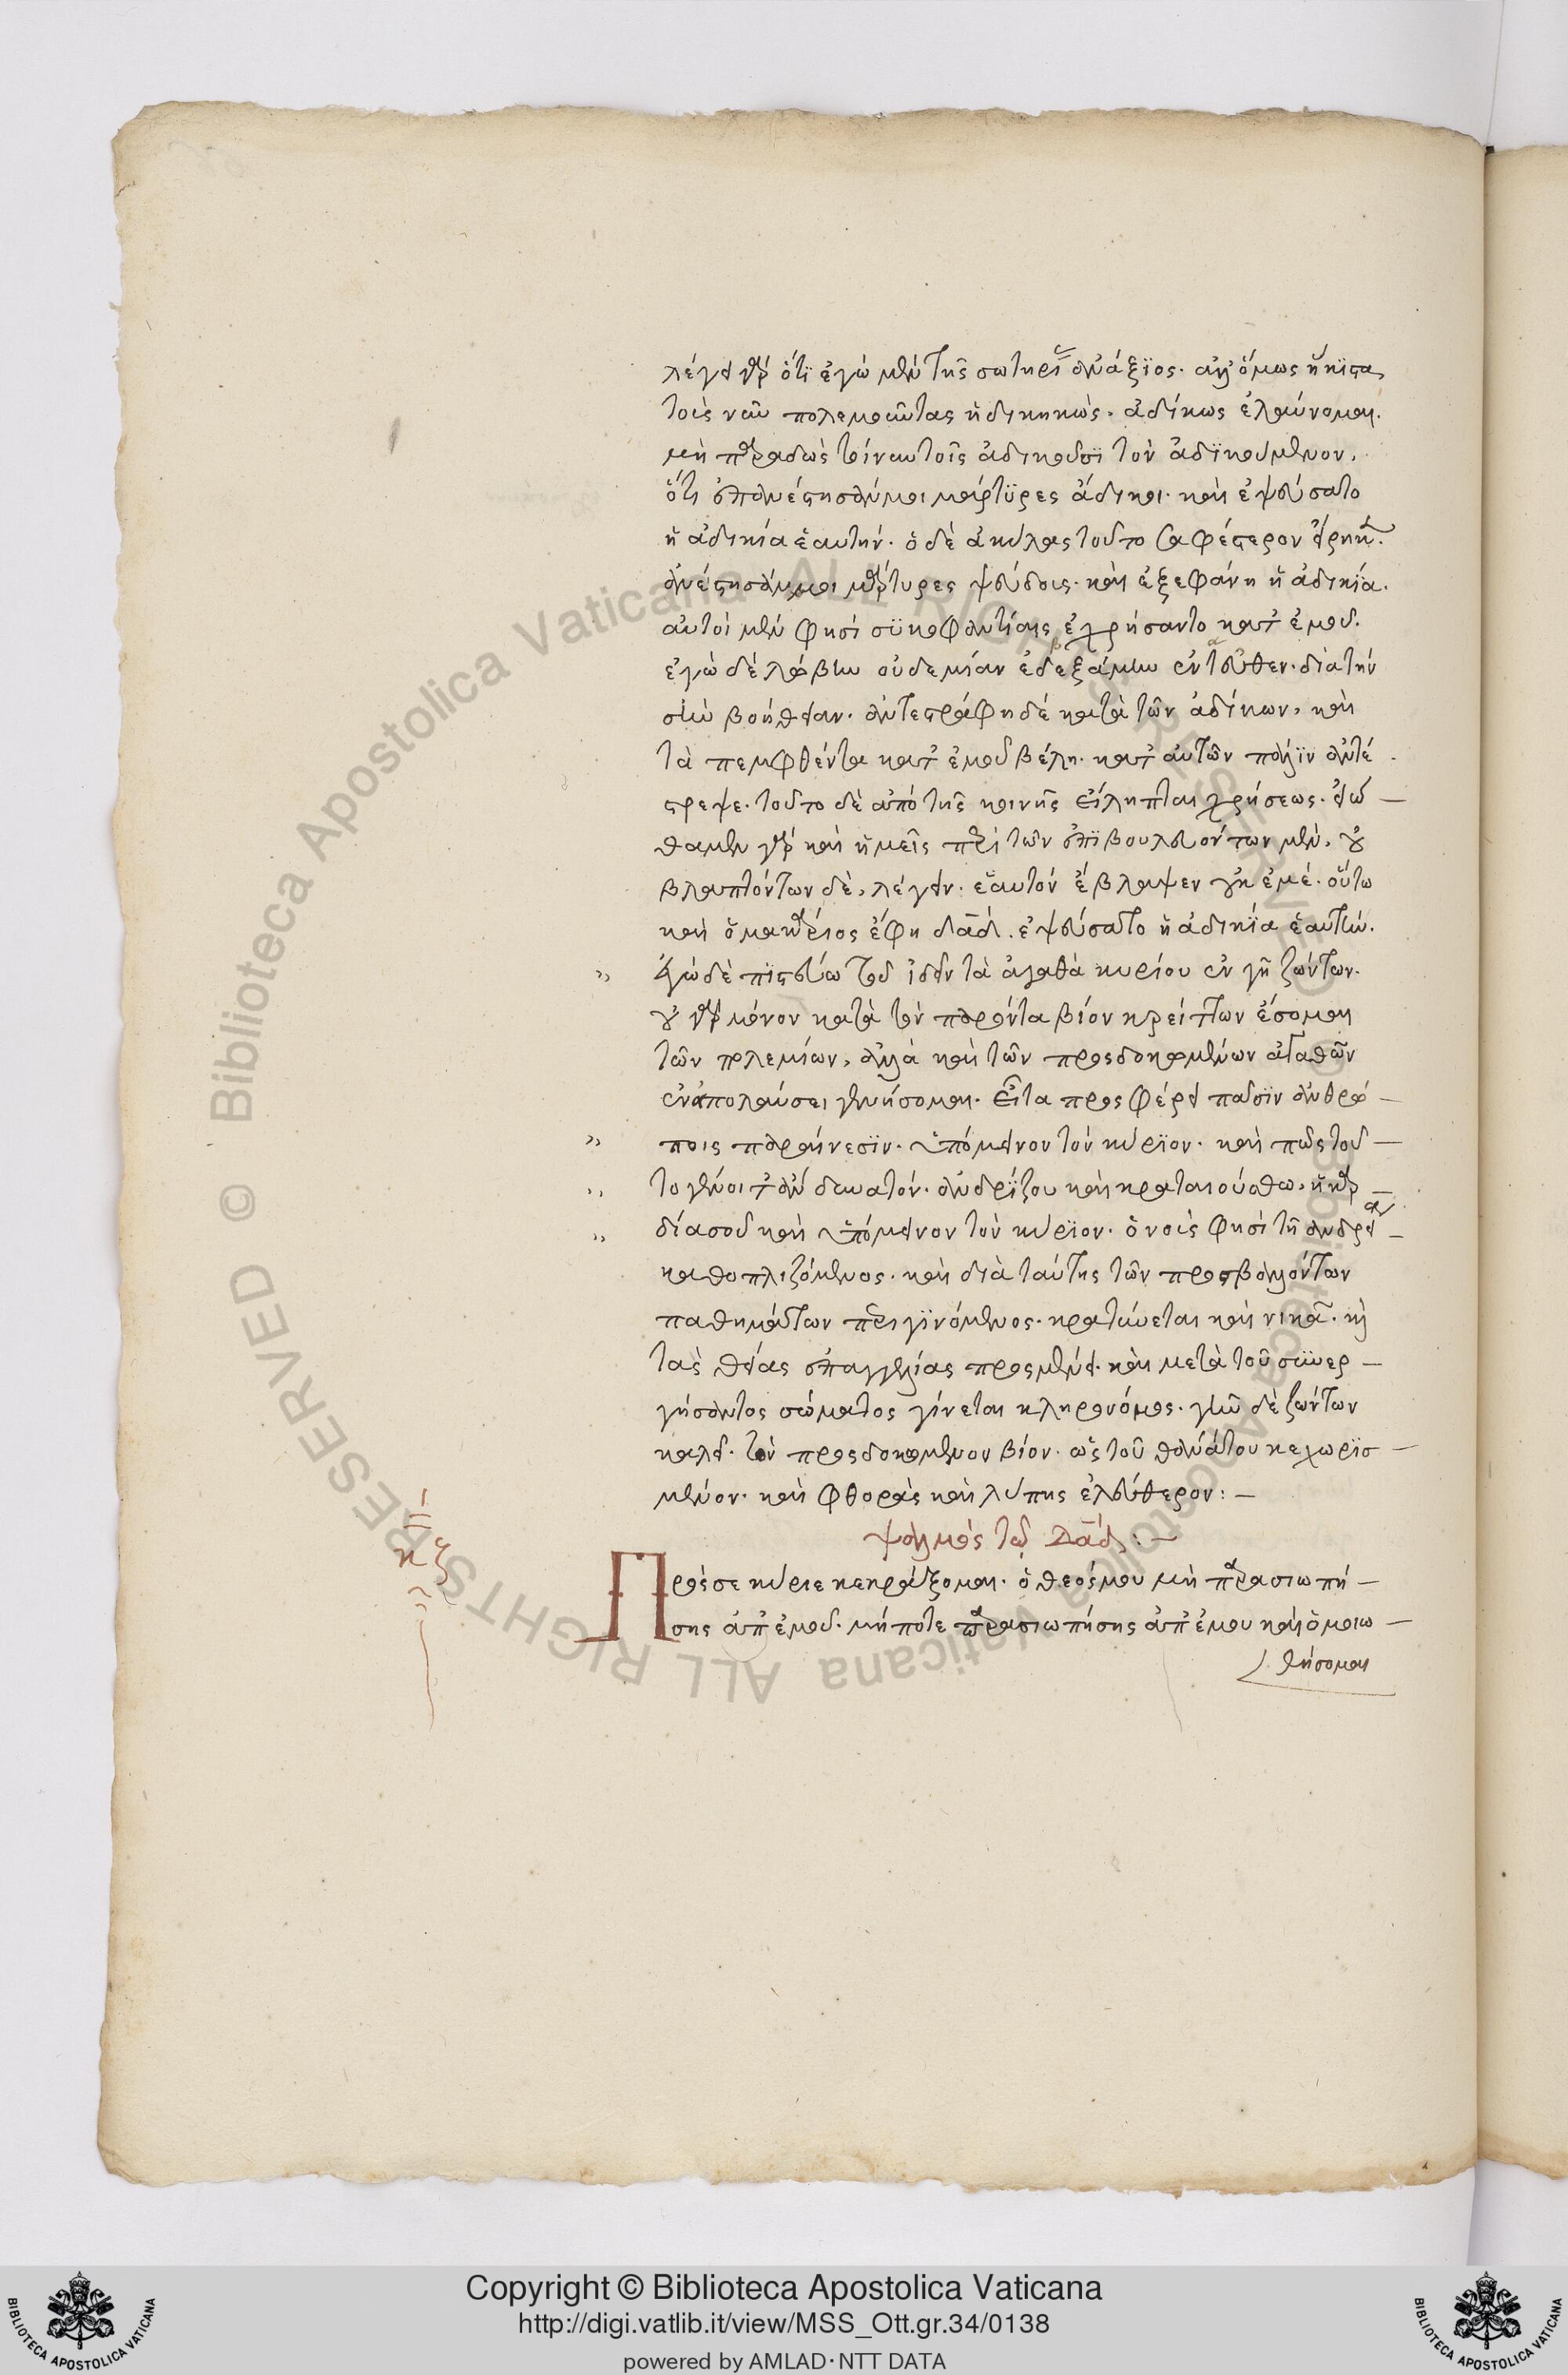 λέγει γὰρ ὅτι ἐγὼ μὲν τῆς σωτηρίας ἀνάξιος. ἀλλ' ὅμως ἥκιστα
τοὺς νῦν πολεμοῦντας ἠδικηκώς. ἀδίκως ἐλαύνομαι.
μὴ παραδῷς τοίνυν τοῖς ἀδικοῦσι τὸν ἀδικούμενον.
ὅτι ἐπανέστησάν μοι μάρτυρες ἄδικοι. καὶ ἐψεύσατο
ἡ ἀδικία ἑαυτήν. ὁ δὲ ἀκύλας τοῦτο σαφέστερον εἴρηκεν.
ἀνέστησάν μοι μάρτυρες ψευδεῖς. καὶ ἐξεφάνη ἡ ἀδικία.
αὐτοὶ μὲν φησὶ συκοφαντίαις ἐχρήσαντο κατ' ἐμοῦ.
ἐγὼ δὲ λώβην οὐδεμίαν ἐδεξάμην ἐντεῦθεν. διὰ τὴν
σὴν βοήθειαν. ἀντεστράφη δὲ κατὰ τῶν ἀδίκων, καὶ
τὰ πεμφθέντα κατ' ἐμοῦ βέλη. κατ' αὐτῶν πάλιν ἀντέ
στρεψε. τοῦτο δὲ ἀπὸ τῆς κοινῆς εἴληπται χρήσεως. εἰώ
θαμεν γὰρ καὶ ἡμεῖς περὶ τῶν ἐπιβουλευόντων μὲν, οὐ
βλαπτόντων δὲ, λέγειν. ἑαυτὸν ἔβλαψεν οὐκ ἐμέ. οὕτω
καὶ ὁ μακάριος ἔφη δαδ. ἐψεύσατο ἡ ἀδικία ἑαυτήν.
" ἐγὼ δὲ πιστεύω τοῦ ἰδεῖν τὰ ἀγαθὰ κυρίου ἐν γῇ ζώντων.
οὐ γὰρ μόνον κατὰ τὸν παρόντα βίον κρείττων ἔσομαι
τῶν πολεμίων, ἀλλὰ καὶ τῶν προσδοκωμένων ἀγαθῶν
ἐν ἀπολαύσει γενήσομαι. εἶτα προσφέρει πᾶσιν ἀνθρώ
" ποις παραίνεσιν. ὑπόμεινον τὸν κύριον. καὶ πῶς τοῦ
" το γένοιτ' ἂν δυνατόν. ἀνδρίζου καὶ κραταιούσθω, ἡ καρ
" δία σοῦ καὶ ὑπόμεινον τὸν κύριον. ὁ νοῦς φησὶ τῇ ἀνδρείᾳ
καθοπλιζόμενος. καὶ διὰ ταύτης τῶν προσβαλλόντων
παθημάτων περιγινόμενος. κρατύνεται καὶ νικᾷ. καὶ
τὰς θείας ἐπαγγελίας προσμένει. καὶ μετὰ τοῦ συνερ
γήσαντος σώματος γίνεται κληρονόμος. γῆν δὲ ζώντων
καλεῖ. τὸν προσδοκώμενον βίον. ὡς τοῦ θανάτου κεχωρισ
μένον. καὶ φθορᾶς καὶ λύπης ἐλεύθερον:
ψαλμὸς τῷ Δαδ:
κζ
Πρὸς σε κύριε κεκράξομαι. ὁ θεός μου μὴ παρασιωπή
σῃς ἀπ' ἐμοῦ. μήποτε παρασιωπήσῃς ἀπ' ἐμοῦ καὶ ὁμοιω
θήσομαι
© Biblioteca Apostolica Vaticana ALL RIGHTS RESERVED © Biblioteca Apostolica Vaticana ALL RIGHTS RESERVED
Copyright © Biblioteca Apostolica Vaticana
http://digi.vatlib.it/view/MSS_Ott.gr.34/0138
powered by AMLAD·NTT DATA
BIBLIOTECA APOSTOLICA VATICANA
BIBLIOTECA APOSTOLICA VATICANA